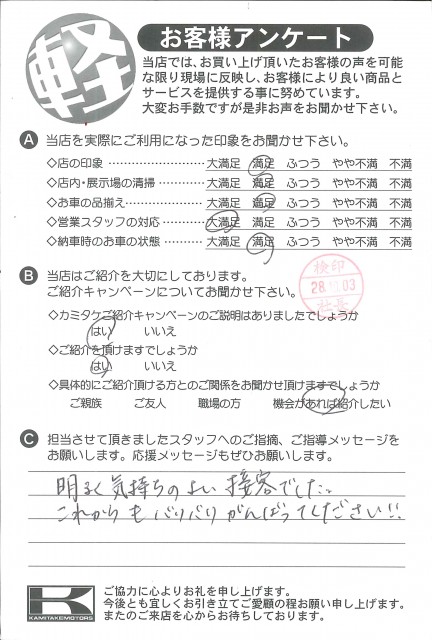 軽
お客様アンケート
当店では、お買い上げ頂いたお客様の声を可能
な限り現場に反映し、お客様により良い商品と
サービスを提供する事に努めています。
大変お手数ですが是非お声をお聞かせ下さい。
A 当店を実際にご利用になった印象をお聞かせ下さい。
◇店の印象 大満足 満足 ふつう やや不満 不満
◇店内・展示場の清掃 大満足 満足 ふつう やや不満 不満
◇お車の品揃え 大満足 満足 ふつう やや不満 不満
◇営業スタッフの対応 大満足 満足 ふつう やや不満 不満
◇納車時のお車の状態 大満足 満足 ふつう やや不満 不満
B 当店はご紹介を大切にしております。
ご紹介キャンペーンについてお聞かせ下さい。
検印
社長
◇カミタケご紹介キャンペーンのご説明はありましたでしょうか
はい いいえ
◇ご紹介を頂けますでしょうか
はい いいえ
◇具体的にご紹介頂ける方とのご関係をお聞かせ頂けますでしょうか
ご親族 ご友人 職場の方 機会があれば紹介したい
C 担当させて頂きましたスタッフへのご指摘、ご指導メッセージを
お願いします。応援メッセージもぜひお願いします。
明るく気持ちのよい接客でした。
これからもバリバリがんばってください!!
K
KAMITAKEMOTORS
ご協力に心よりお礼を申し上げます。
今後とも宜しくお引き立てご愛顧の程お願い申し上げます。
またのご来店を心からお待ちしております。